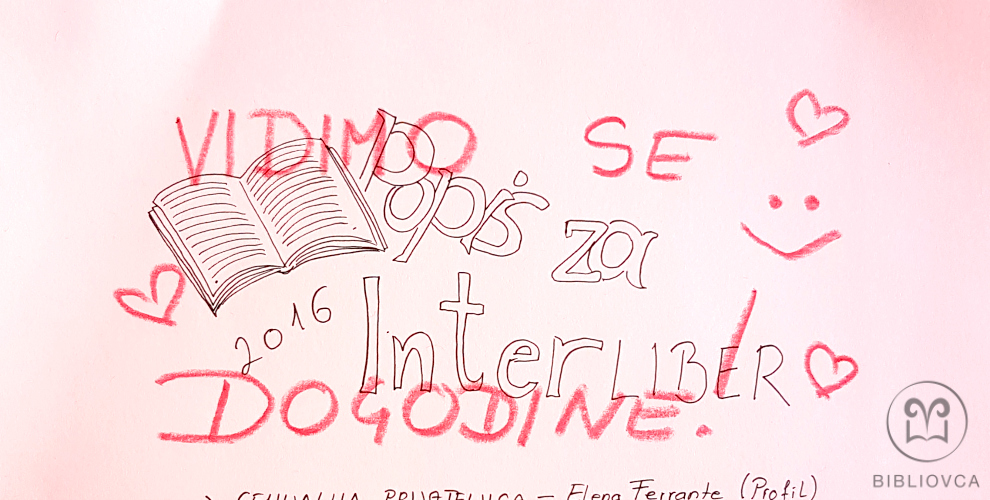 VIDIMO SE
popis za
2016 InterLIBER
DOGODINE!
GENIJALNA PRIJATELJICA – Elena Ferrante (Profil)
BIBLIOVCA